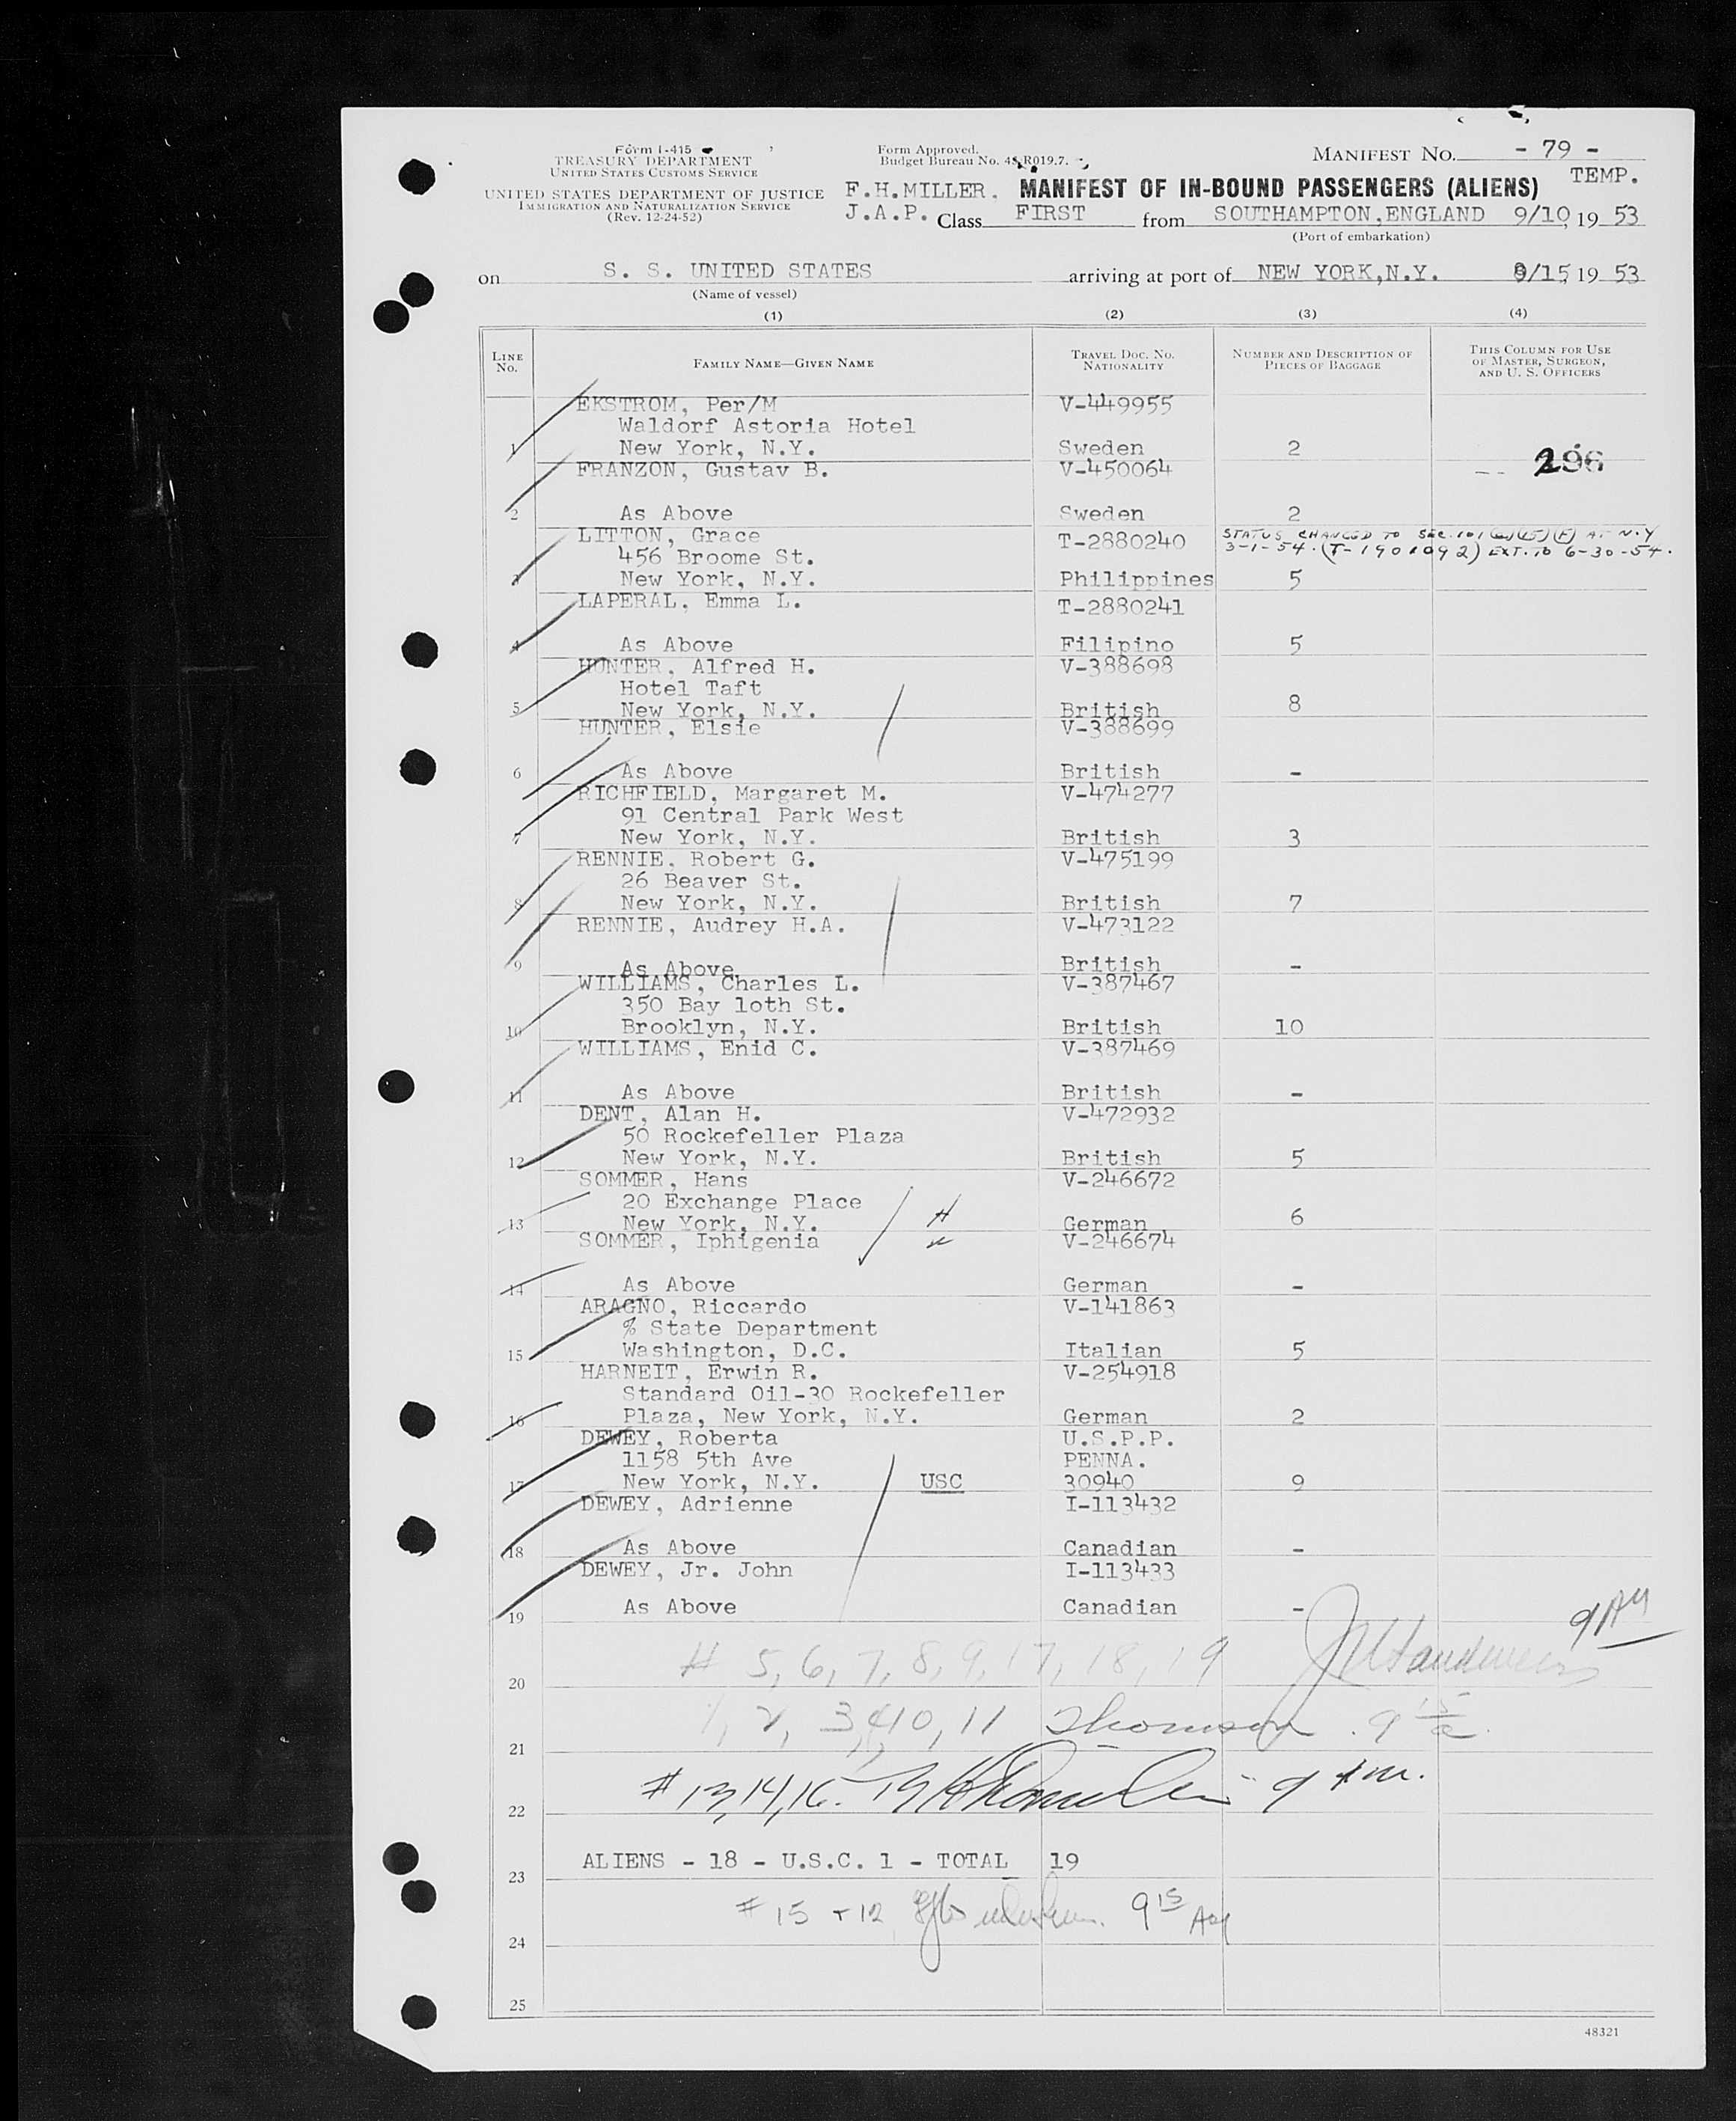 Form I-415
TREASURY DEPARTMENT
UNITED STATES CUSTOMS SERVICE
UNITED STATES DEPARTMENT OF JUSTICE
IMMIGRATION AND NATURALIZATION SERVICE
(Rev. 12-24-52)
Form Approved.
Budget Bureau No. 43-R019.7.
MANIFEST NO. - 79 -
TEMP.
F.H.MILLER. MANIFEST OF IN-BOUND PASSENGERS (ALIENS)
J.A.P. Class FIRST from SOUTHAMPTON,ENGLAND 9/10, 19 53
(Port of embarkation)
on S. S. UNITED STATES arriving at port of NEW YORK,N.Y. 9/15 19 53
(Name of vessel)
(1) (2) (3) (4)
LINE NO. FAMILY NAME—GIVEN NAME TRAVEL DOC. NO. NATIONALITY NUMBER AND DESCRIPTION OF PIECES OF BAGGAGE THIS COLUMN FOR USE OF MASTER, SURGEON, AND U. S. OFFICERS
EKSTROM, Per/M V-449955
Waldorf Astoria Hotel
1 New York, N.Y. Sweden 2
296
FRANZON, Gustav B. V-450064
2 As Above Sweden 2
LITTON, Grace T-2880240 STATUS CHANGED TO SEC. 101 (a)(15)(F) AT N.Y
456 Broome St. 3-1-54. (T-1901092) EXT. TO 6-30-54.
3 New York, N.Y. Philippines 5
LAPERAL, Emma L. T-2880241
4 As Above Filipino 5
HUNTER, Alfred H. V-388698
Hotel Taft
5 New York, N.Y. British 8
HUNTER, Elsie V-388699
6 As Above British -
RICHFIELD, Margaret M. V-474277
91 Central Park West
7 New York, N.Y. British 3
RENNIE, Robert G. V-475199
26 Beaver St.
8 New York, N.Y. British 7
RENNIE, Audrey H.A. V-473122
9 As Above British -
WILLIAMS, Charles L. V-387467
350 Bay loth St.
10 Brooklyn, N.Y. British 10
WILLIAMS, Enid C. V-387469
11 As Above British -
DENT, Alan H. V-472932
50 Rockefeller Plaza
12 New York, N.Y. British 5
SOMMER, Hans V-246672
20 Exchange Place
13 New York, N.Y. H German 6
SOMMER, Iphigenia W V-246674
14 As Above German -
ARAGNO, Riccardo V-141863
% State Department
15 Washington, D.C. Italian 5
HARNEIT, Erwin R. V-254918
Standard Oil-30 Rockefeller
16 Plaza, New York, N.Y. German 2
DEWEY, Roberta U.S.P.P.
1158 5th Ave PENNA.
17 New York, N.Y. USC 30940 9
DEWEY, Adrienne I-113432
18 As Above Canadian -
DEWEY, Jr. John I-113433
19 As Above Canadian -
9 AM
# 5, 6, 7, 8, 9, 17, 18, 19
20
1, 2, 3, 4, 10, 11 Thomson 9 15/a
21
# 13, 14, 16. 9 AM.
22
ALIENS - 18 - U.S.C. 1 - TOTAL 19
23
# 15 + 12 9 15 AM
24
25
48321